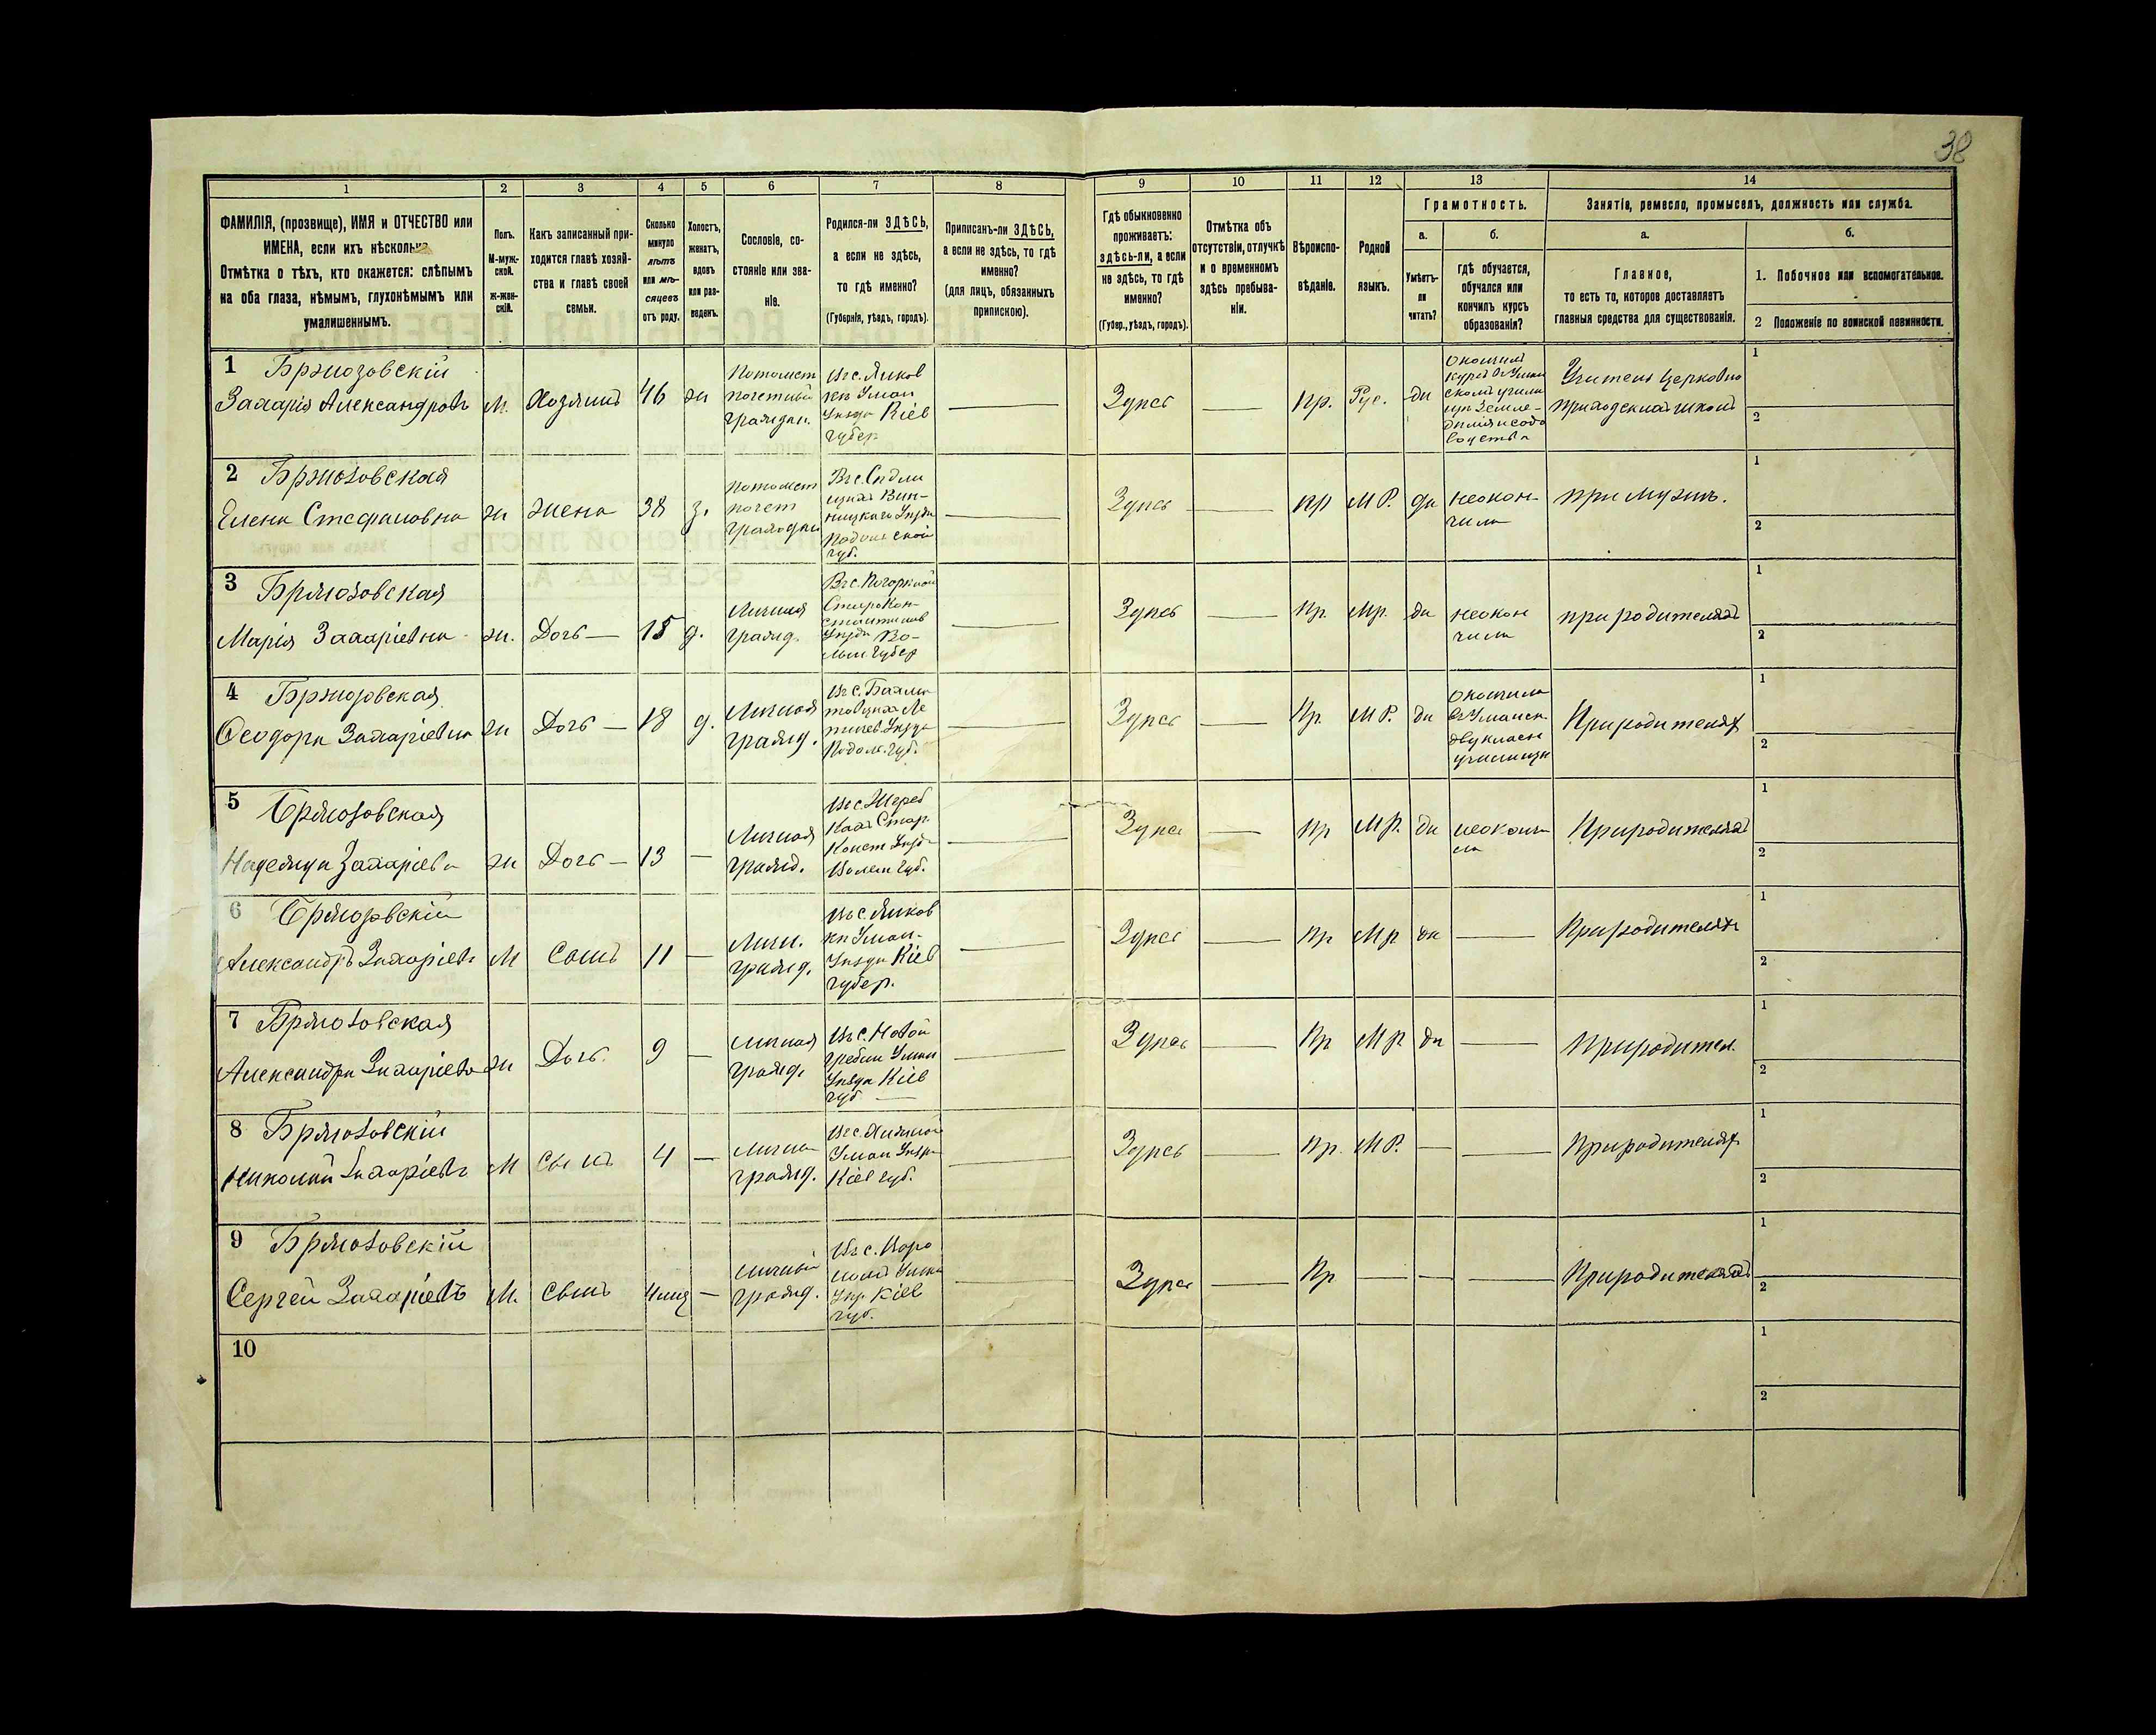 38
1 2 3 4 5 6 7 8 9 10 11 12 13 14
ФАМИЛІЯ, (прозвище), ИМЯ и ОТЧЕСТВО или
ИМЕНА, если ихъ нѣсколько.
Отмѣтка о тѣхъ, кто окажется: слѣпымъ
на оба глаза, нѣмымъ, глухонѣмымъ или
умалишеннымъ.
Полъ.
М-муж-
ской.
Ж-жен-
скій.
Какъ записанный при-
ходится главѣ хозяй-
ства и главѣ своей
семьи.
Сколько
минуло
лѣтъ
или мѣ-
сяцевъ
отъ роду.
Холостъ,
женатъ,
вдовъ
или раз-
веденъ.
Сословіе, со-
стояніе или зва-
ніе.
Родился-ли ЗДѢСЬ,
а если не здѣсь,
то гдѣ именно?
(Губернія, уѣздъ, городъ).
Приписанъ-ли ЗДѢСЬ,
а если не здѣсь, то гдѣ
именно?
(для лицъ, обязанныхъ
припискою).
Гдѣ обыкновенно
проживаетъ:
здѣсь-ли, а если
не здѣсь, то гдѣ
именно?
(Губер., уѣздъ, городъ).
Отмѣтка объ
отсутствіи, отлучкѣ
и о временномъ
здѣсь пребыва-
ніи.
Вѣроиспо-
вѣданіе.
Родной
языкъ.
Грамотность.
а.
Умѣетъ-
ли
читать?
б.
гдѣ обучается,
обучался или
кончилъ курсъ
образованія?
Занятіе, ремесло, промыселъ, должность или служба.
а.
Главное,
то есть то, которое доставляетъ
главныя средства для существованія.
б.
1. Побочное или вспомогательное.
2 Положеніе по воинской повинности.
1 Бржозовскій
Захарія Александровъ
М.
Хозяинъ
46
ж
Потомст
почетный
граждан.
Въ с. Янков
кѣ Уман
Уѣзда Кіев
губер
Здѣсь
Пр.
Рус.
да
Окончилъ
курсъ въ Уман
скомъ учили
щѣ Земле-
дѣлія и садо
водства
Учитель церковно
приходской школы
1
2
2 Бржозовская
Елена Стефановна
ж
жена
38
з.
потомст
почет
граждан
Въ с. Сидли
щахъ Вин-
ницкаго Уѣзда
Подольской
губ.
Здѣсь
Пр
МР.
да
неокон-
чила
при мужѣ.
1
2
3 Бржозовская
Марія Захаріевна
ж.
Дочь
15
д.
Личная
гражд.
Старокон-
стантинов
Уѣзда Во-
лын губер
Здѣсь
Пр.
Мр.
да
неокон
чила
при родителяхъ
1
2
4 Бржозовская
Ѳеодора Захаріевна
ж
Дочь
18
д.
Личная
гражд.
Ле
тичев. Уѣзда
Подол. губ.
Здѣсь
Пр.
МР.
да
Окончила
въ Уманск.
двухклас
училищѣ
При родителях
1
2
5 Бржозовская
Надежда Захаріева
ж
Дочь
13
Личная
гражд.
Стар
Конст Уѣзд
Волын губ.
Здѣсь
Пр
МР.
да
неокончи
ла
При родителяхъ
1
2
6 Бржозовскій
Александръ Захаріевъ
М
Сынъ
11
Личн.
гражд.
Въ с. Янков
кѣ Уман-
Уѣзда Кіев
губер.
Здѣсь
Пр
Мр
да
При родителях
1
2
7 Бржозовская
Александра Захаріева
ж
Дочь.
9
Личная
гражд.
Въ с. Новой
Гребли Уман
Уѣзда Кіев
губ
Здѣсь
Пр
МР
да
При родител.
1
2
8 Бржозовскій
Николай Захаріевъ
М
Сынъ
4
Лична
гражд.
Уман Уѣзда
Кіев губ.
Здѣсь
Пр.
МР.
При родителях
1
2
9 Бржозовскій
Сергей Захаріевъ
М.
Сынъ
4 мц
Личный
гражд.
Уман
Уѣз. Кіев
губ.
Здѣсь
Пр
При родителяхъ
1
2
10
1
2